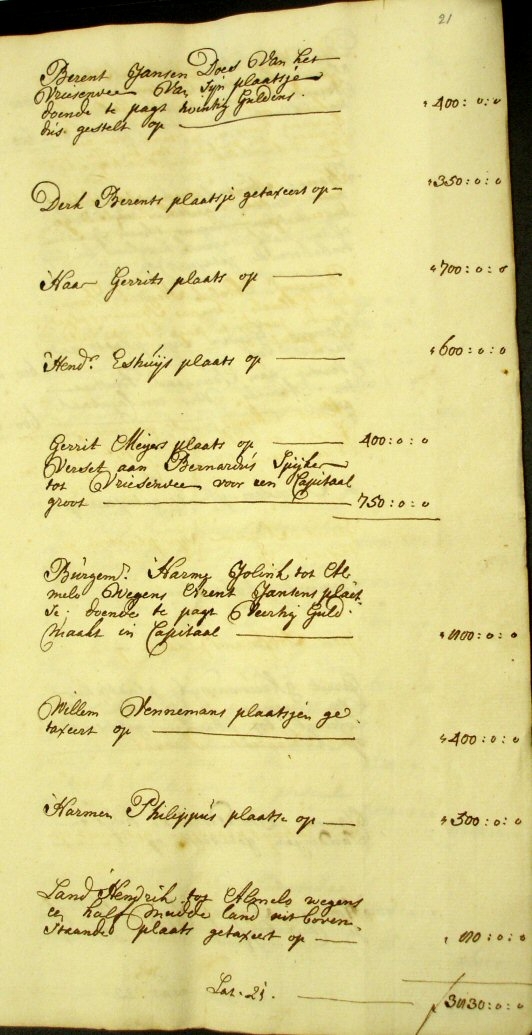 21
Berent Jansen Does Van het
Vriesenvee Van sijn plaatsje
doende te pagt twintig Guldens.
dus gestelt op — " 400:0:0
Derk Berents plaatsje getaxeert op — " 350:0:0
Haar Gerrits plaats op — " 700:0:0
Hendr. Eshuijs plaats op — " 600:0:0
Gerrit Meijers plaats op — 400:0:0
Verset aan Bernardus Spijker
tot Vriesenvee voor een Capitaal
groot — 750:0:0
Burgemr. Harmen Jolink tot Al
melo wegens Arent Jansens plaet
se. doende te pagt Veertig Guld.
maakt in Capitaal — " 800:0:0
Willem Vennemans plaatsjen ge
taxeert op — " 400:0:0
Harmen Philippus plaatse op — " 500:0:0
Land Hendrik tot Almelo wegens
een half mudde land uit boven-
staande plaats getaxeert op — " 80:0:0
Lat. 21. — ƒ 3830:0:0